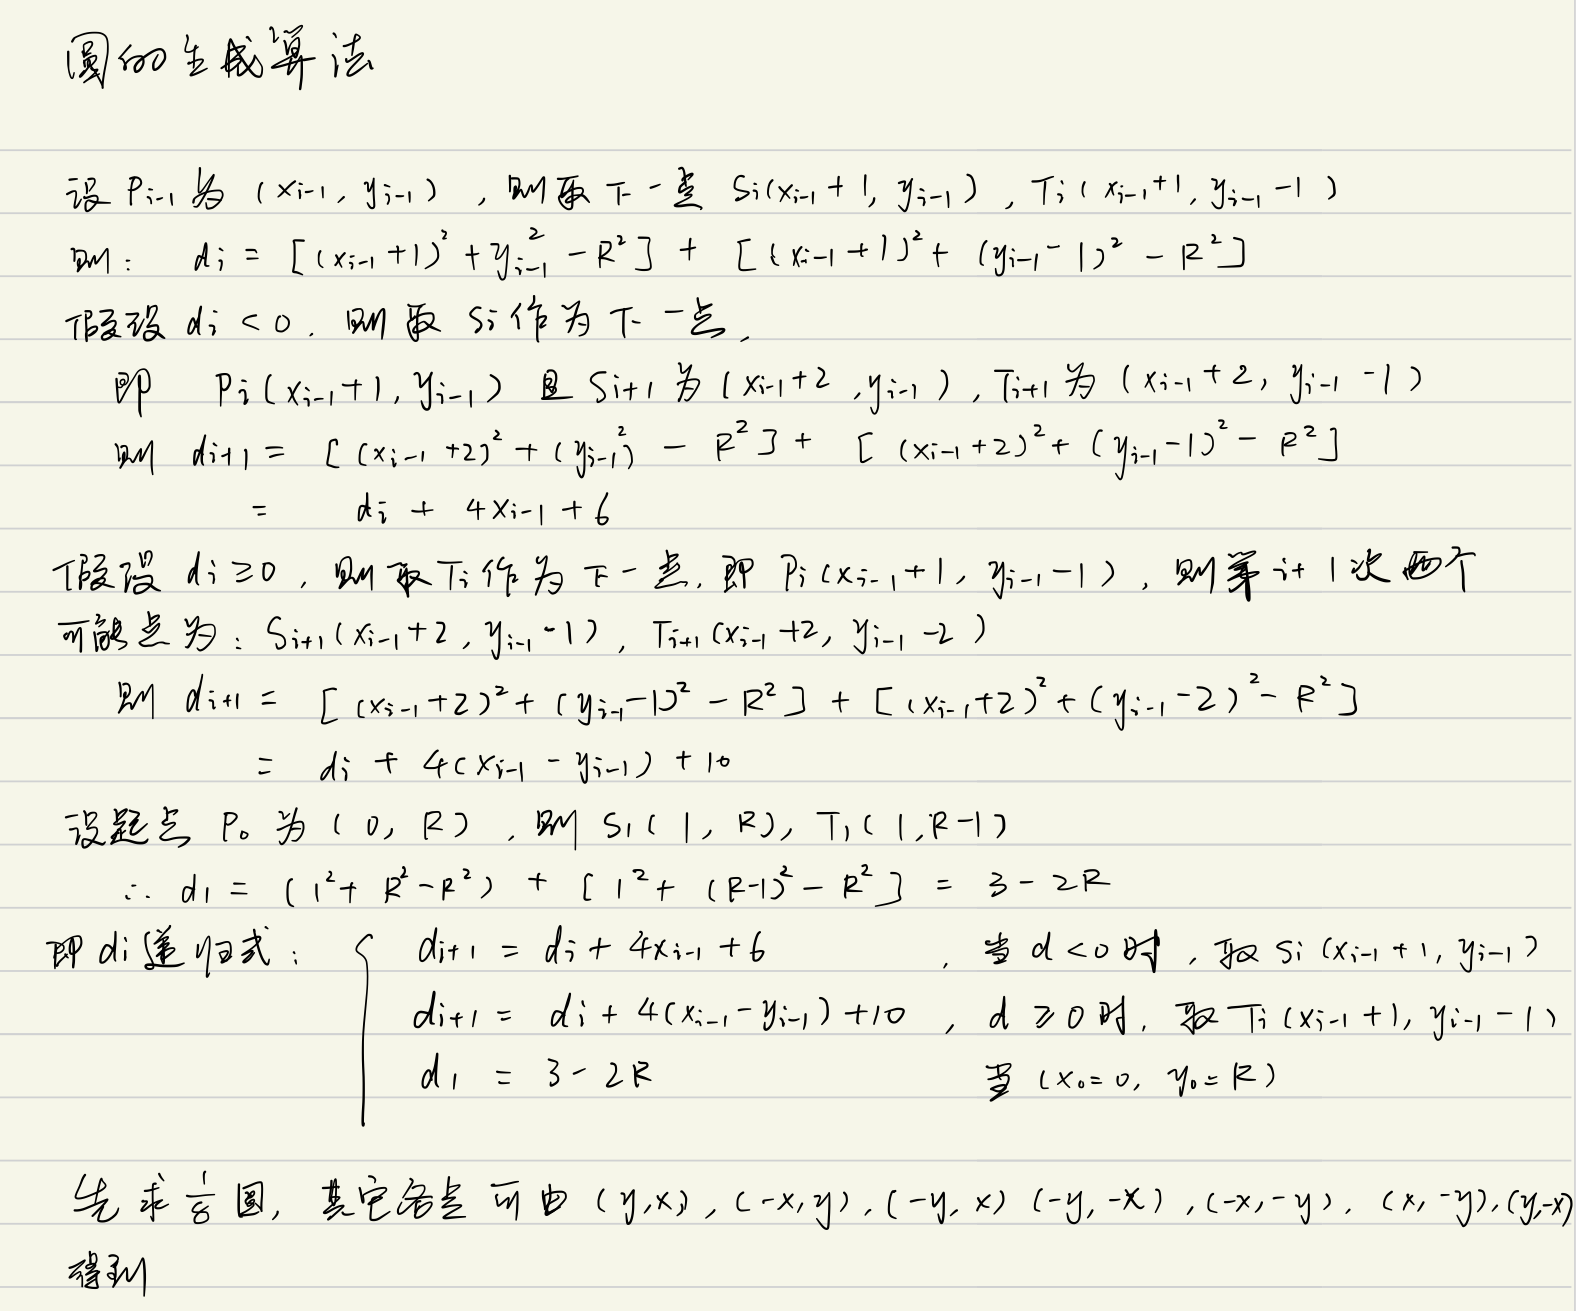 圆的生成算法
设 Pi-1 为 (xi-1, yi-1) , 则取下一点 Si(xi-1 + 1, yi-1) , Ti( xi-1+1, yi-1 -1 )
则: di = [(xi-1 +1)² + yi-1² - R²] + [(xi-1 +1)² + (yi-1 - 1)² - R²]
假设 di < 0, 则取 Si 作为下一点,
即 Pi(xi-1+1, yi-1) 且 Si+1 为 (xi-1+2 ,yi-1) , Ti+1 为 (xi-1 + 2, yi-1 -1 )
则 di+1 = [(xi-1 +2)² + (yi-1²) - R²] + [(xi-1 +2)² + (yi-1 -1)² - R²]
= di + 4xi-1 + 6
假设 di ≥0 , 则取 Ti 作为下一点, 即 Pi (xi-1 +1, yi-1 -1) , 则第 i+1次两个
可能点为: Si+1(xi-1+2, yi-1 -1), Ti+1(xi-1 +2, yi-1 -2 )
则 di+1 = [(xi-1 +2)² + (yi-1 -1)² - R²] + [(xi-1 +2)² + (yi-1 -2)² - R²]
= di + 4(xi-1 - yi-1) + 10
设起点 P₀ 为 (0, R) , 则 S₁( 1, R), T₁( 1, R-1)
∴ d₁ = (1² + R² - R²) + [1² + (R-1)² - R²] = 3 - 2R
即 di 递归式: { di+1 = di + 4xi-1 + 6 , 当 d <0 时, 取 Si (xi-1 + 1, yi-1)
di+1 = di + 4(xi-1 - yi-1) +10 , d ≥0 时, 取 Ti (xi-1 +1, yi-1 -1)
d₁ = 3 - 2R 当 (x₀=0, y₀=R)
先求 1/8 圆, 其它各点可由 (y,x) , (-x,y) , (-y, x) (-y, -x) , (-x, -y), (x, -y), (y,-x)
得到